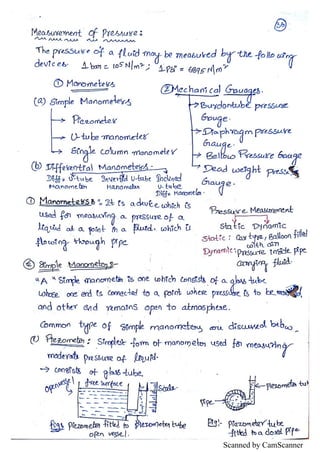 Measurement of Pressure:
The pressure of a fluid may be measured by the following
devices 1 bar = 10⁵ N/m² ; 1 PSI = 6895 N/m²
① Manometers
② Mechanical Gauages.
(a) Simple Manometers
→ Piezometer
→ U-tube manometer
→ Single Column manometer
→ Burdontube pressure
Gauge.
→ Diaphragm pressure
Gauge.
→ Bellow Pressure Gauge
→ Dead weight press
Gauge.
(b) Differential Manometers -
Diff. U-tube Manometer
Inverted U-tube Manometer
Inclined U-tube Diff. Manometer
① Manometers: It is a device which is
used for measuring a pressure of a
liquid at a point in a fluid. which is
flowing through pipe
Pressure Measurement
Static Dynamic
Static : Car tyre, Balloon filled
with air
Dynamic: pressure inside pipe
carrying fluid.
Simple Manometers -
"A" Simple manometer is one which consists of a glass tube
whose one end is connected to a point where pressure is to be
and other end remains open to atmosphere.
Common type of Simple manometers are discussed below.
Piezometer : Simplest form of manometer used for measuring
moderate pressure of liquid.
→ consists of glass tube.
open vessel
free surface
Scale
Pipe
piezometer tub
fig: Piezometer fitted to open vessel.
Piezometer tube
Fig:- Piezometer tube
fitted to a closed pipe
Scanned by CamScanner